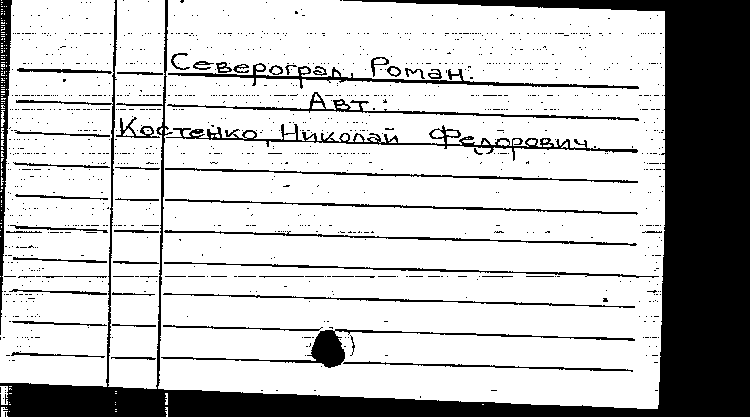 Североград. Роман.
Авт.:
Костенко, Николай Федорович.